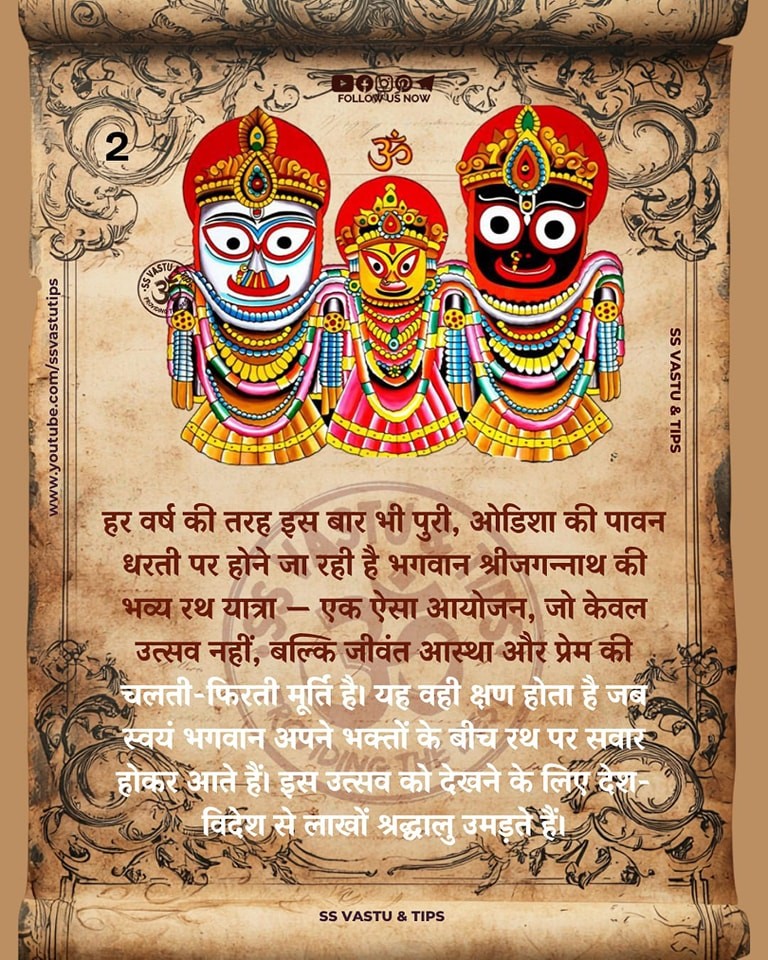 FOLLOW US NOW
2
ॐ
SS VASTU
www.youtube.com/ssvastutips
SS VASTU & TIPS
हर वर्ष की तरह इस बार भी पुरी, ओडिशा की पावन
धरती पर होने जा रही है भगवान श्रीजगन्नाथ की
भव्य रथ यात्रा — एक ऐसा आयोजन, जो केवल
उत्सव नहीं, बल्कि जीवंत आस्था और प्रेम की
चलती-फिरती मूर्ति है। यह वही क्षण होता है जब
स्वयं भगवान अपने भक्तों के बीच रथ पर सवार
होकर आते हैं। इस उत्सव को देखने के लिए देश-
विदेश से लाखों श्रद्धालु उमड़ते हैं।
SS VASTU & TIPS
ॐ
SS VASTU & TIPS